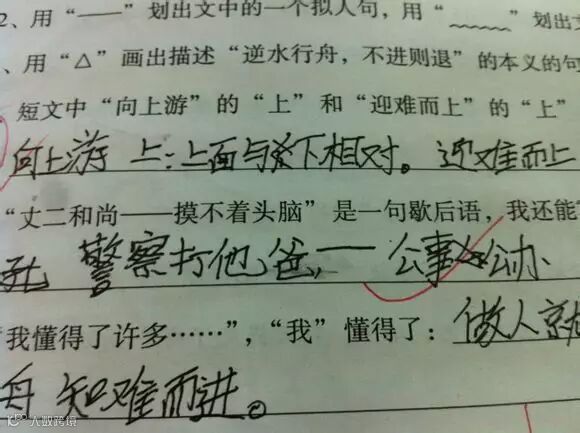 2、用“——”划出文中的一个拟人句，用“﹏﹏”划出文
、用“△”画出描述“逆水行舟，不进则退”的本义的句
短文中“向上游”的“上”和“迎难而上”的“上”
向上游 上：上面与下相对。 迎难而上
“丈二和尚——摸不着头脑”是一句歇后语，我还能
警察打他爸，——公事公办
“我懂得了许多……”，“我”懂得了：做人就
舟 知难而进。
大数跨境